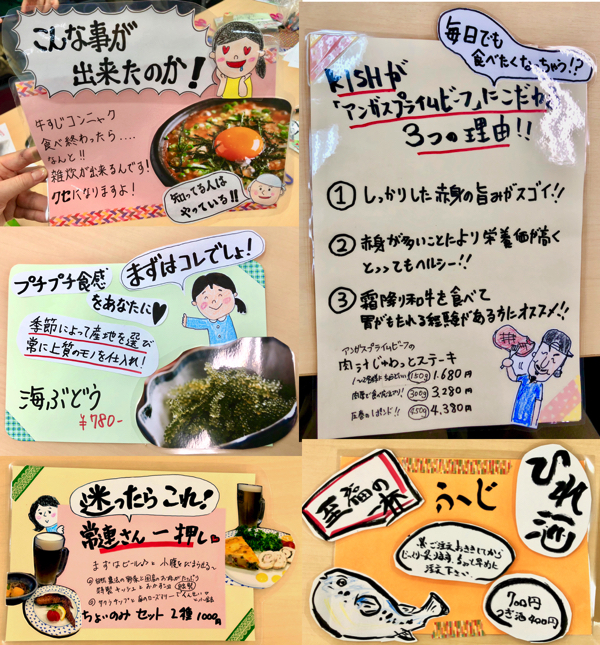 こんな事が
出来たのか!
牛すじコンニャク
食べ終わったら....
なんと!!
雑炊が出来るんです!
クセになりますよ!
知ってる人は
やっている!!
毎日でも
食べたくなっちゃう!?
KISHが
「アンガスプライムビーフ」にこだわる
3つの理由!!
① しっかりした赤身の旨みがスゴイ!!
② 赤身が多いことにより栄養価が高く
とってもヘルシー!!
③ 霜降り和牛を食べて
胃がもたれる経験がある方にオススメ!!
アンガスプライムビーフの
肉汁じゅわっとステーキ
150g 1.680円
300g 3.280円
450g 4.380円
まずはコレでしょ!
プチプチ食感
をあなたに♥
季節によって産地を選び
常に上質のモノを仕入れ!
海ぶどう
¥780-
迷ったらこれ!
常連さん一押し
まずはビール♪と小腹をおまうよう〜
ちょいのみセット2種1000円
至福の一杯
ふーじ
ひれ酒
注文下さい
700円
つぎ酒400円